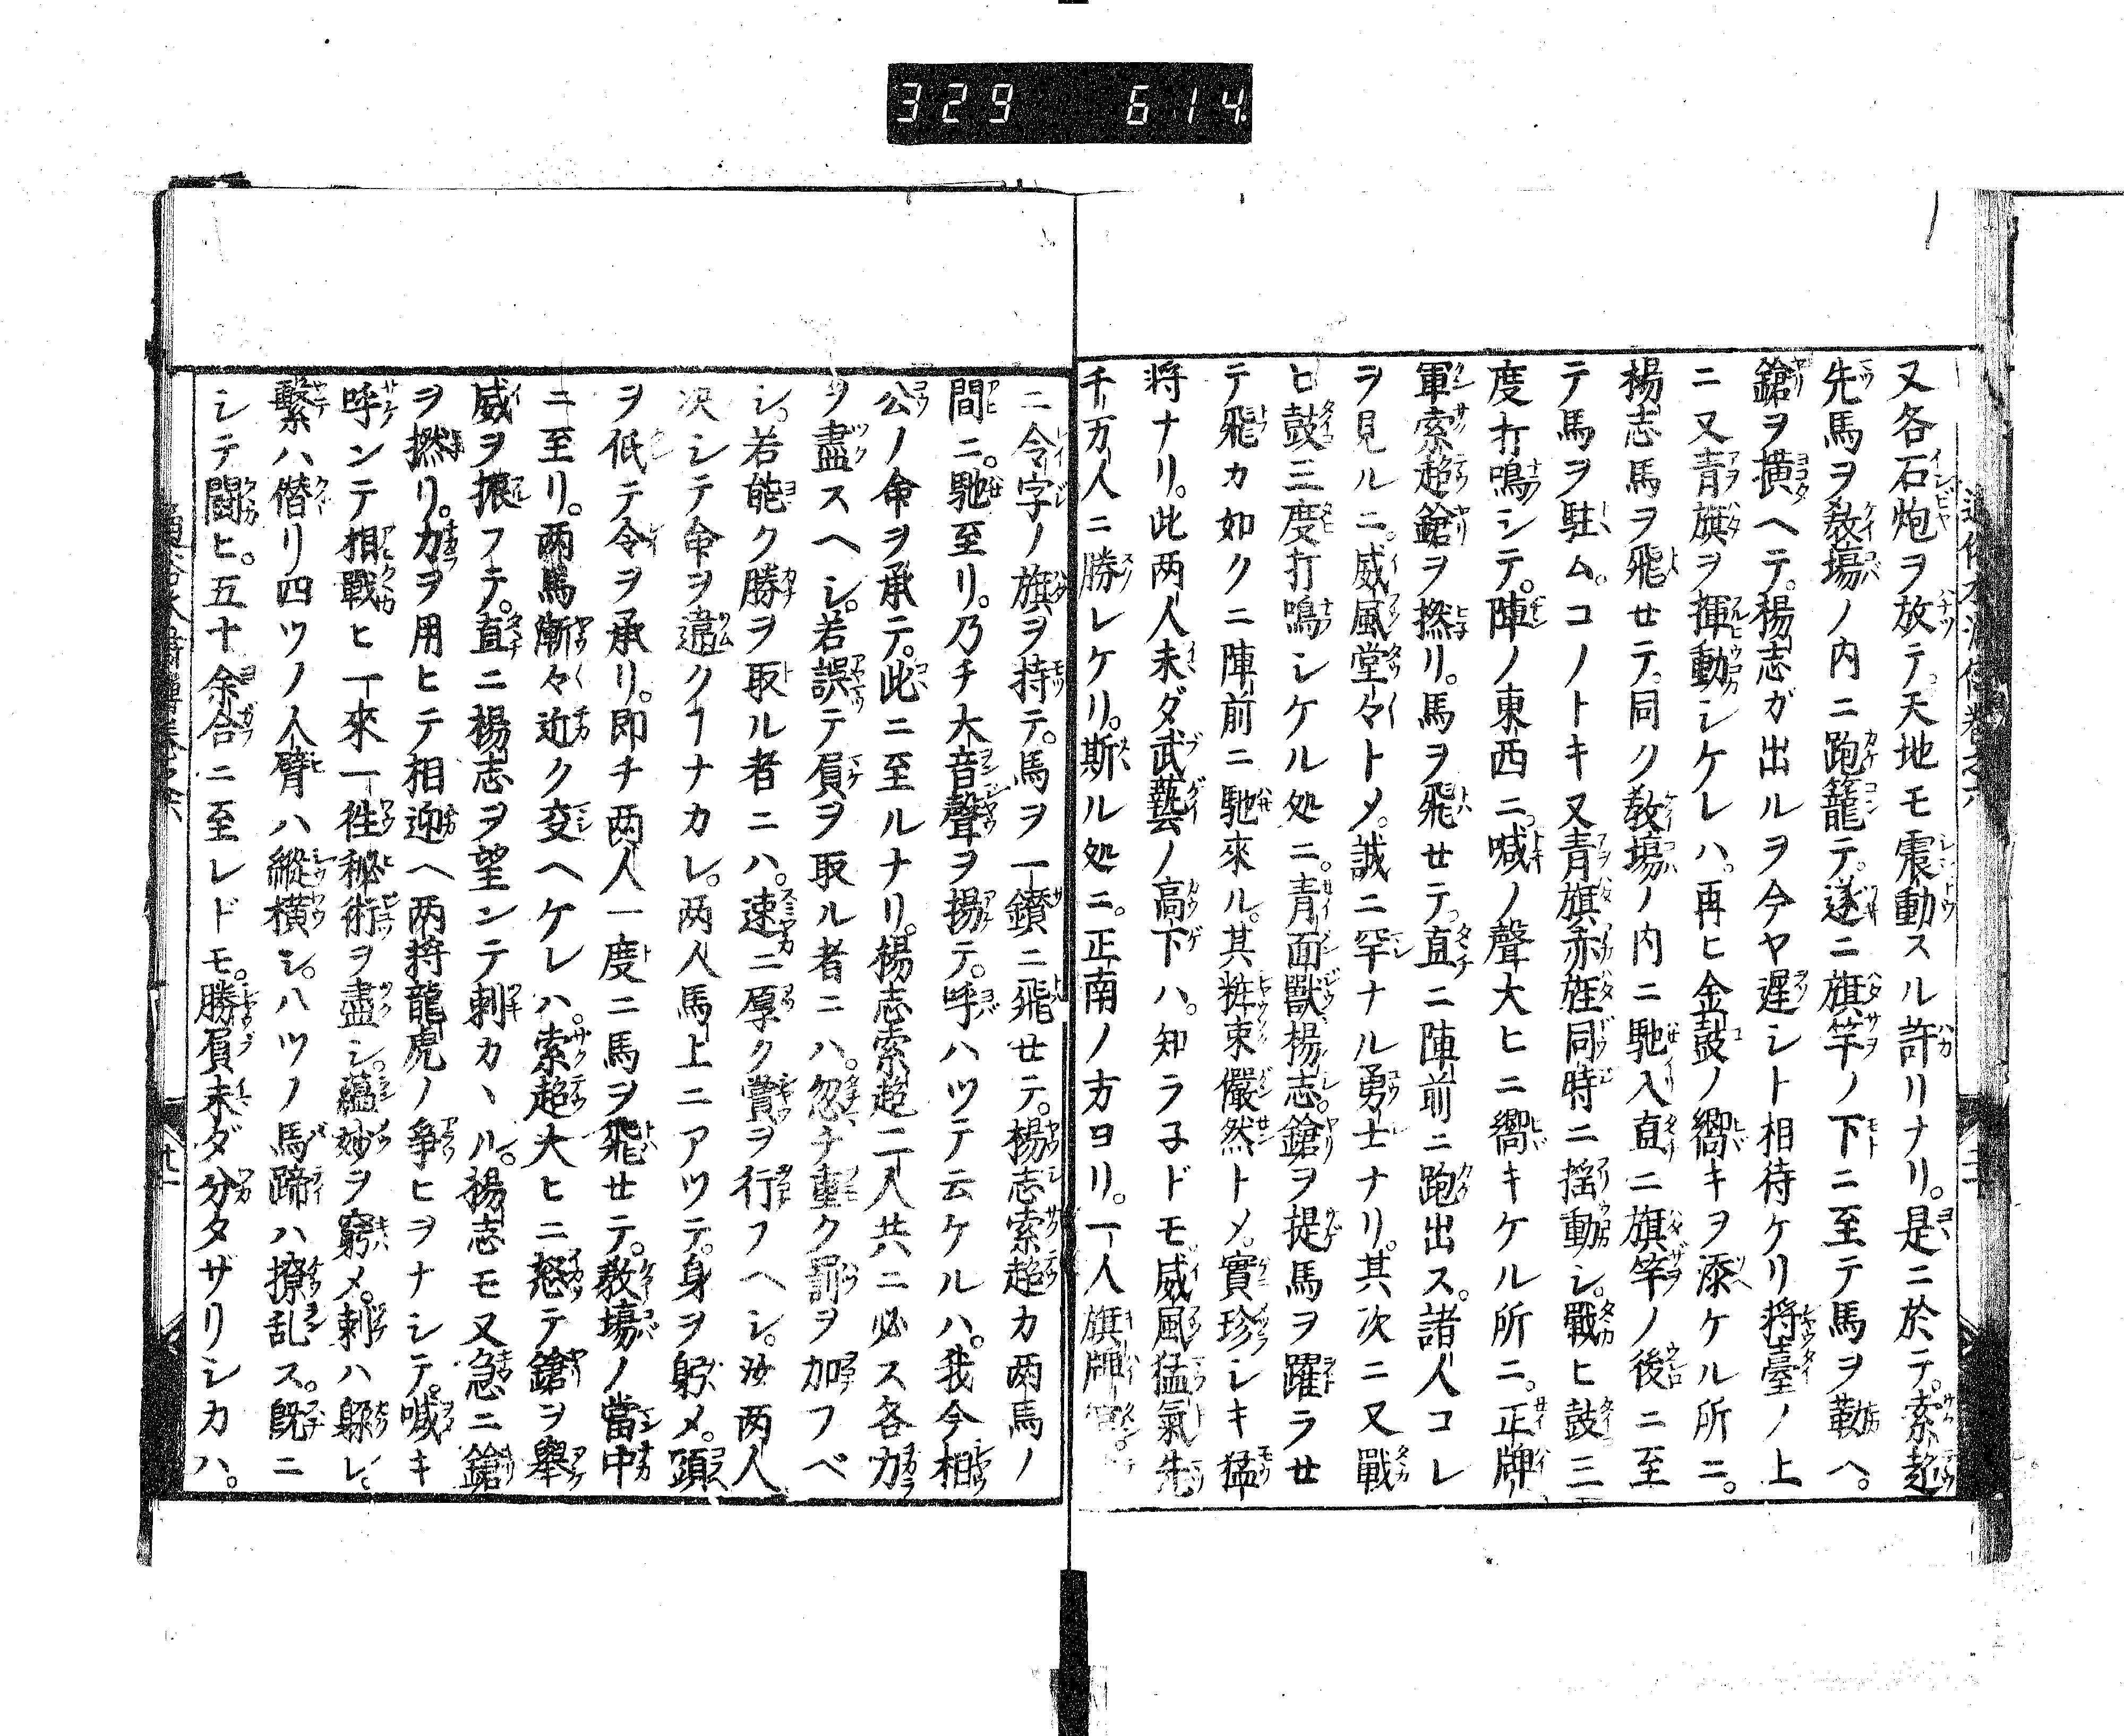 329 614
又各石炮ヲ放テ。天地モ震動スル許リナリ。是ニ於テ。索超
先馬ヲ敎塲ノ内ニ跑籠テ。遂ニ旗竿ノ下ニ至テ馬ヲ勒ヘ。
鎗ヲ横ヘテ。楊志ガ出ルヲ今ヤ遲シト相待ケリ將臺ノ上
ニ又青旗ヲ揮動シケレハ。再ヒ金鼓ノ嚮キヲ添ケル所ニ。
楊志馬ヲ飛セテ。同ク敎塲ノ内ニ馳入直ニ旗竿ノ後ニ至
テ馬ヲ駐ム。コノトキ又青旗赤旌同時ニ揺動シ。戰ヒ鼓三
度打鳴シテ。陣ノ東西ニ。喊ノ聲大ヒニ嚮キケル所ニ。正牌
軍索超鎗ヲ撚リ。馬ヲ飛セテ。直ニ陣前ニ跑出ス。諸人コレ
ヲ見ルニ。威風堂々トメ。誠ニ罕ナル勇士ナリ。其次ニ又戰
ヒ鼓三度打鳴シケル処ニ。青面獸楊志。鎗ヲ提馬ヲ躍ラセ
テ飛カ如クニ陣前ニ馳來ル。其粧束儼然トメ。實珍シキ猛
将ナリ。此两人未ダ武藝ノ高下ハ。知ラ子ドモ威風猛氣先
千万人ニ勝レケリ。斯ル処ニ。正南ノ方ヨリ。一人旗牌官。
ニ令字ノ旗ヲ持テ。馬ヲ一鑚ニ飛セテ。楊志索超カ两馬ノ
間ニ。馳至リ。乃チ大音聲ヲ揚テ。呼ハツテ云ケルハ。我今相
公ノ命ヲ承テ。此ニ至ルナリ。楊志索超二人共ニ必ス各力
ヲ盡スヘシ。若誤テ負ヲ取ル者ニハ。忽チ重ク罰ヲ加フベ
シ。若能ク勝ヲ取ル者ニハ。速ニ厚ク賞ヲ行フヘシ。汝两人
决シテ命ヲ違クヿナカレ。两人馬上ニアツテ。身ヲ躬メ。頭
ヲ低テ令ヲ承リ。即チ两人一度ニ馬ヲ飛セテ。敎塲ノ當中
ニ至リ。两馬漸々近ク交ヘケレハ。索超大ヒニ怒テ鎗ヲ擧
威ヲ振フテ。直ニ楊志ヲ望ンテ刺カヽル。揚志モ又急ニ鎗
ヲ撚リ。力ヲ用ヒテ相迎ヘ两将龍虎ノ爭ヒヲナシテ。喊キ
呼ンテ相戰ヒ一來一徃秘術ヲ盡シ。蘊妙ヲ窮メ。剌ハ躱レ
繫ハ偕リ四ツノ人臂ハ縱横シ。八ツノ馬蹄ハ撩乱ス。既ニ
シテ鬪ヒ。五十余合ニ至レドモ。勝負未ダ分タザリシカハ。